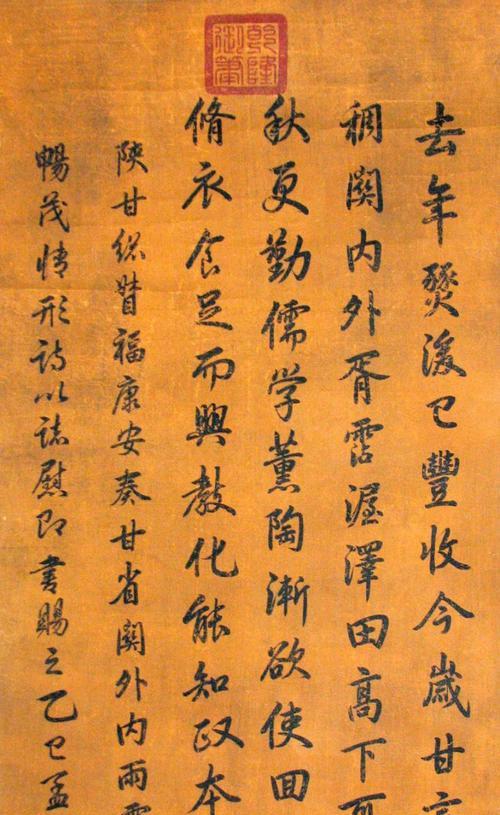 乾隆御筆
去年燹後已豐收今歲甘
稠闗内外胥霑渥澤田高下
秋更勤儒学薰陶漸欲使回
脩衣食足而興教化能知政本
陝甘總督福康安奏甘省闗外内雨
暢茂情形詩以誌慰即書賜之乙巳孟